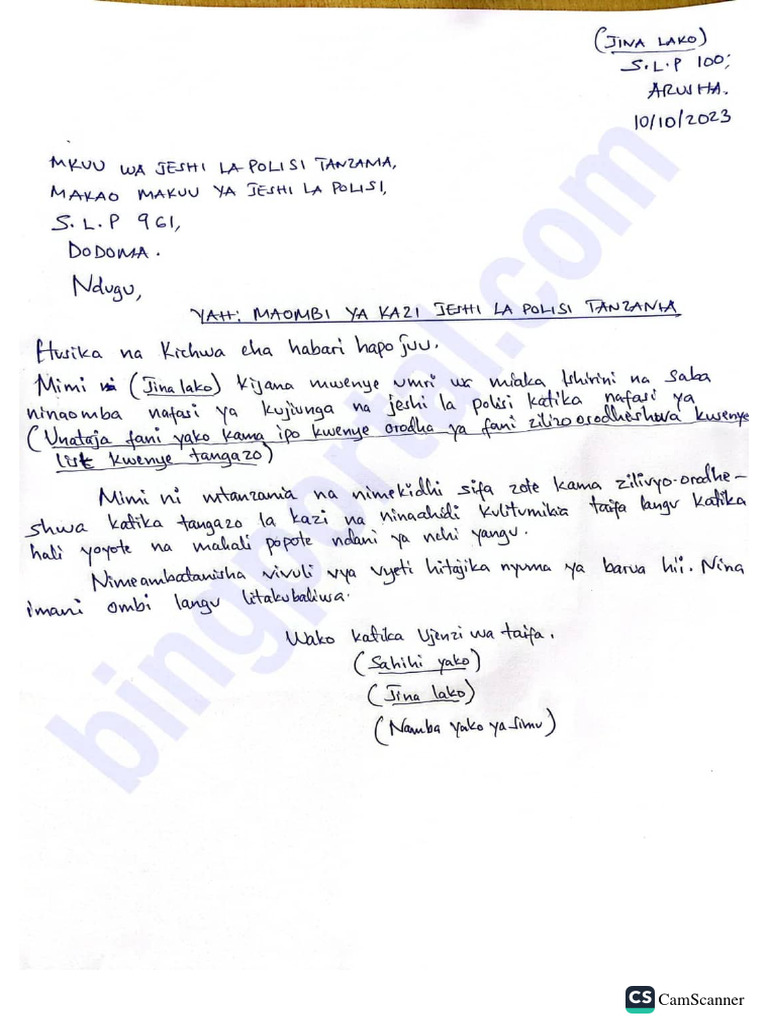 (JINA LAKO)
S.L.P 100;
ARUSHA.
10/10/2023
MKUU WA JESHI LA POLISI TANZANIA,
MAKAO MAKUU YA JESHI LA POLISI,
S.L.P 961,
DODOMA.
Ndugu,
YAH: MAOMBI YA KAZI JESHI LA POLISI TANZANIA
Husika na Kichwa cha habari hapo juu.
Mimi ni (Jina lako) kijana mwenye umri wa miaka Ishirini na Saba
ninaomba nafasi ya kujiunga na jeshi la polisi katika nafasi ya
(Unataja fani yako kama ipo kwenye orodha ya fani zilizoorodheshwa kwenye
list kwenye tangazo)
Mimi ni mtanzania na nimekidhi sifa zote kama zilivyo-orodhe-
shwa katika tangazo la kazi na ninaahidi kulitumikia taifa langu katika
hali yoyote na mahali popote ndani ya nchi yangu.
Nimeambatanisha vivuli vya vyeti hitajika nyuma ya barua hii. Nina
imani ombi langu litakubaliwa.
Wako katika Ujenzi wa taifa.
(Sahihi yako)
(Jina lako)
(Namba yako ya simu)
bingportal.com
CS CamScanner